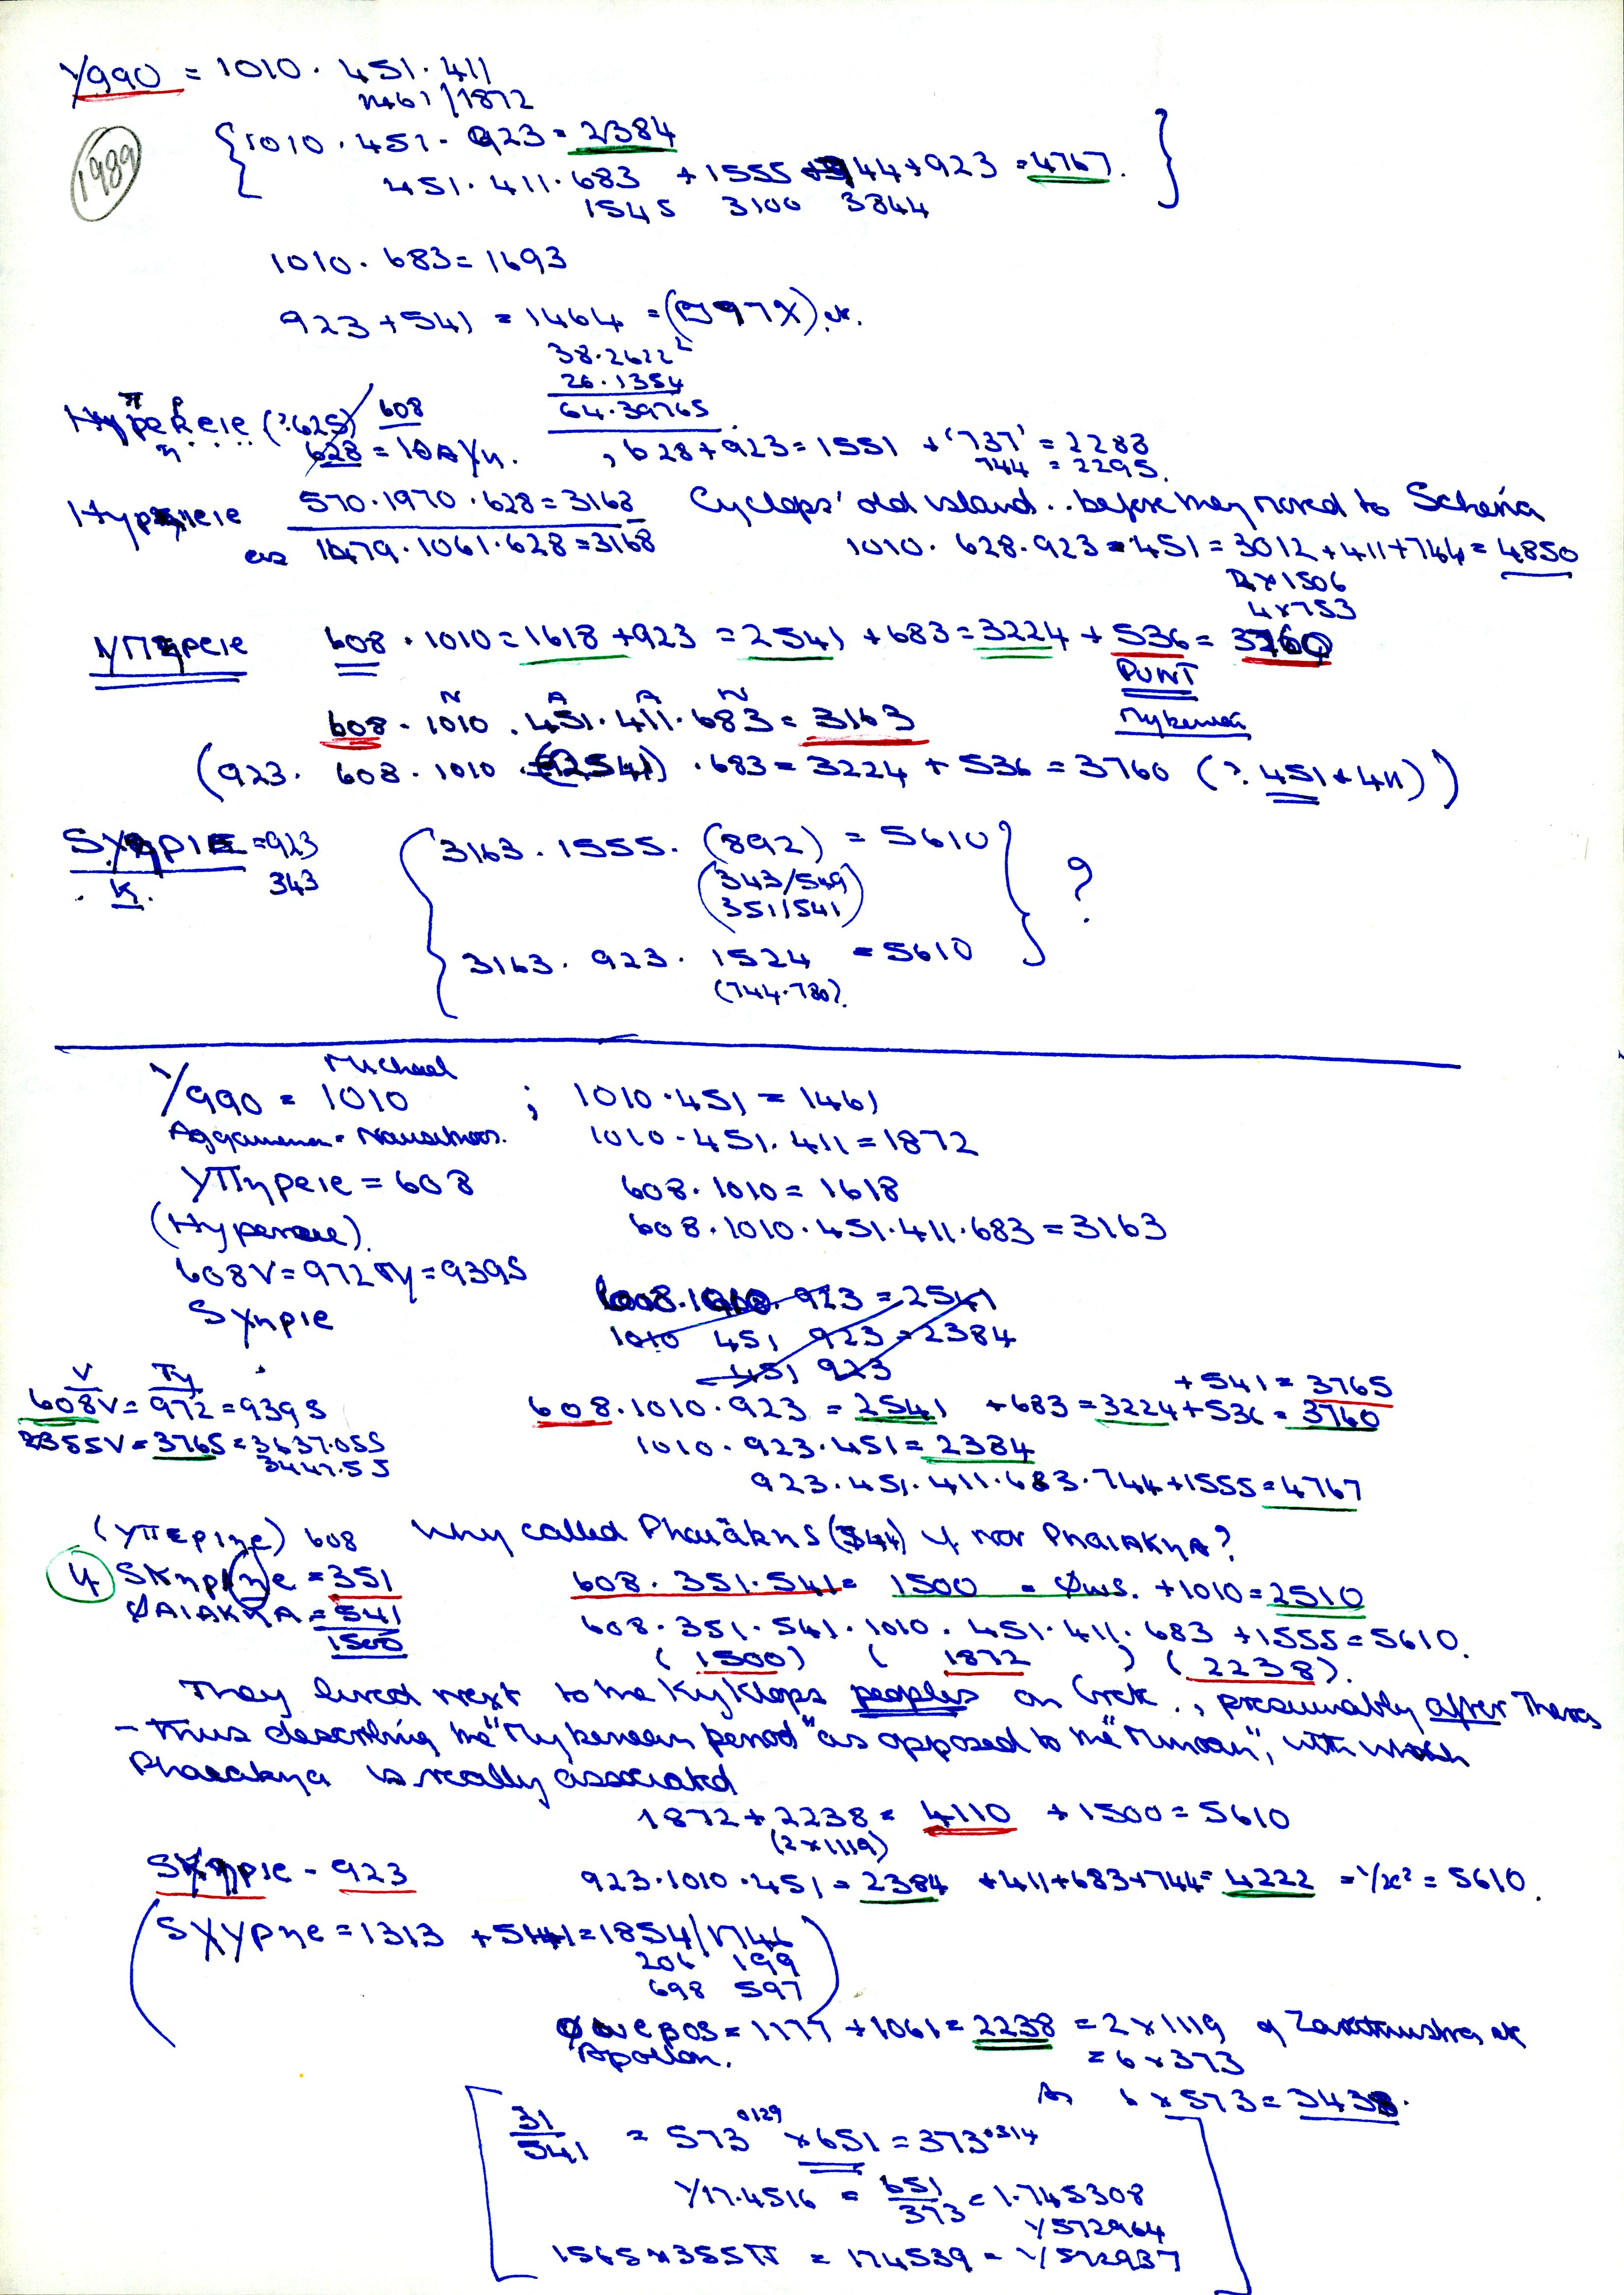 1/990 = 1010 · 451 · 411
1461/1872
1989
{ 1010 · 451 · 923 = 2384
451 · 411 · 683 + 1555 + 744 + 923 = 4767. }
1545 3100 3844
1010 · 683 = 1693
923 + 541 = 1464 =
38·2622²
26·1354
64·39765
608
628 = 10
, 628 + 923 = 1551 + '737' = 2288
744 = 2295.
570 · 1970 · 628 = 3168 Cyclops' old island .. before they moved to Scheria
1479 · 1061 · 628 = 3168 1010 · 628 · 923 · 451 = 3012 + 411 + 744 = 4850
2 x 1506
4 x 753
ΥΠηρειε 608 · 1010 = 1618 + 923 = 2541 + 683 = 3224 + 536 = 3760
PUNT
N A A N
608 · 1010 · 451 · 411 · 683 = 3163 Mykenai
(923 · 608 · 1010 · (2541) · 683 = 3224 + 536 = 3760 (? 451 + 411))
SXηριε = 923
K. 343
{ 3163 · 1555 · (892) = 5610
(343/549)
(351/541)
3163 · 923 · 1524 = 5610 } ?
(744 · 780).
Michael
1/990 = 1010 ; 1010 · 451 = 1461
1010 · 451 · 411 = 1872
ΥΠηρειε = 608 608 · 1010 = 1618
608 · 1010 · 451 · 411 · 683 = 3163
608V = 972 Ty = 939S
SXηριε
608 · 1010 · 923 = 2541
1010 451 923 = 2384
451 923
V Ty
608V = 972 = 939S
+ 541 = 3765
608 · 1010 · 923 = 2541 + 683 = 3224 + 536 = 3760
2355V = 3765 = 3637·055
3447·55
1010 · 923 · 451 = 2384
923 · 451 · 411 · 683 · 744 + 1555 = 4767
608 Why called Phaiäkns (344) if not PhaiAKηA?
4 SKηρ(η)ε = 351 608 · 351 · 541 = 1500 = Øws. + 1010 = 2510
ØAIAKηA = 541
1500
608 · 351 · 541 · 1010 · 451 · 411 · 683 + 1555 = 5610.
(1500) ( 1872 ) (2238).
They lived next to the Kyklops peoples on Crete .., presumably after Thera
- thus describing the "Mykenean period" as opposed to the "Minoan", with which
Phaiakya is really associated
1872 + 2238 = 4110 + 1500 = 5610
(2 x 1119)
SXηριε - 923 923 · 1010 · 451 = 2384 + 411 + 683 + 744 = 4222 = 1/x² = 5610.
(SXYρηε = 1313 + 541 = 1854/1746
206 199
698 597)
= 1177 + 1061 = 2238 = 2 x 1119 of Zarathustra etc
Apollon. = 6 x 373
6 x 573 = 3438.
[ 31/541 = 573⁰¹²⁹ x 651 = 373·0314
1/17·4516 = 651/373 = 1·745308
1/572964
1565 x 355π = 174539 = 1/572937 ]